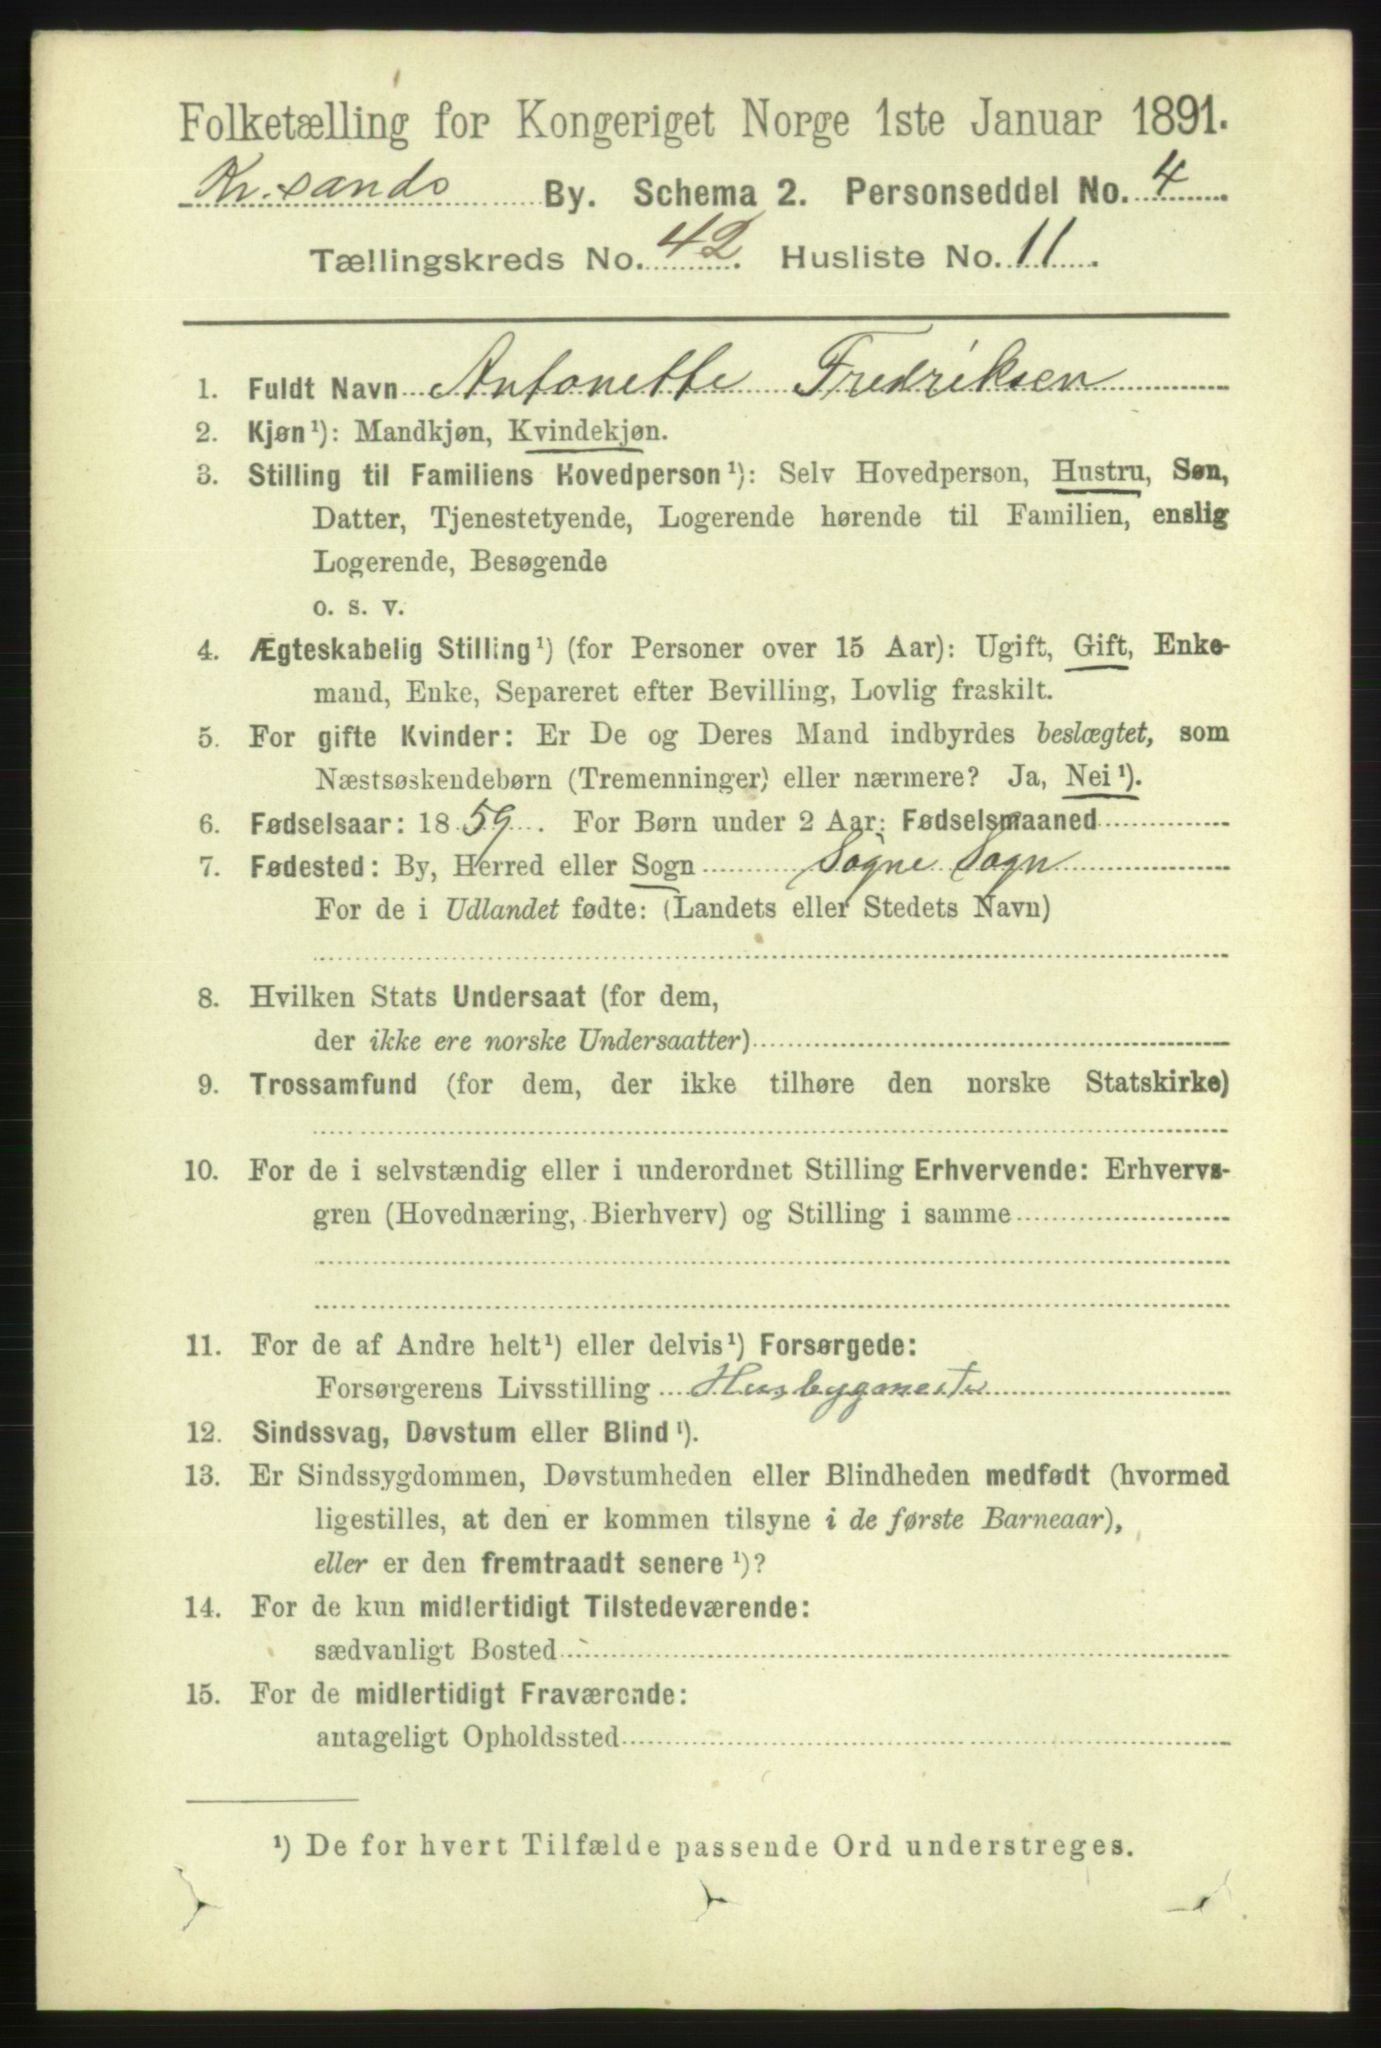 Folketælling for Kongeriget Norge 1ste Januar 1891.
Kr.sands By. Schema 2. Personseddel No. 4
Tællingskreds No. 42. Husliste No. 11.
1. Fuldt Navn Antonette Fredriksen
2. Kjøn¹): Mandkjøn, Kvindekjøn.
3. Stilling til Familiens Hovedperson¹): Selv Hovedperson, Hustru, Søn,
Datter, Tjenestetyende, Logerende hørende til Familien, enslig
Logerende, Besøgende
o. s. v.
4. Ægteskabelig Stilling¹) (for Personer over 15 Aar): Ugift, Gift, Enke-
mand, Enke, Separeret efter Bevilling, Lovlig fraskilt.
5. For gifte Kvinder: Er De og Deres Mand indbyrdes beslægtet, som
Næstsøskendebørn (Tremenninger) eller nærmere? Ja, Nei¹).
6. Fødselsaar: 1859. For Børn under 2 Aar: Fødselsmaaned
7. Fødested: By, Herred eller Sogn Søgne Sogn
For de i Udlandet fødte: (Landets eller Stedets Navn)
8. Hvilken Stats Undersaat (for dem,
der ikke ere norske Undersaatter)
9. Trossamfund (for dem, der ikke tilhøre den norske Statskirke)
10. For de i selvstændig eller i underordnet Stilling Erhvervende: Erhvervs-
gren (Hovednæring, Bierhverv) og Stilling i samme
11. For de af Andre helt¹) eller delvis¹) Forsørgede:
Forsørgerens Livsstilling Husbygmester
12. Sindssvag, Døvstum eller Blind¹).
13. Er Sindssygdommen, Døvstumheden eller Blindheden medfødt (hvormed
ligestilles, at den er kommen tilsyne i de første Barneaar),
eller er den fremtraadt senere¹)?
14. For de kun midlertidigt Tilstedeværende:
sædvanligt Bosted
15. For de midlertidigt Fraværende:
antageligt Opholdssted
¹) De for hvert Tilfælde passende Ord understreges.